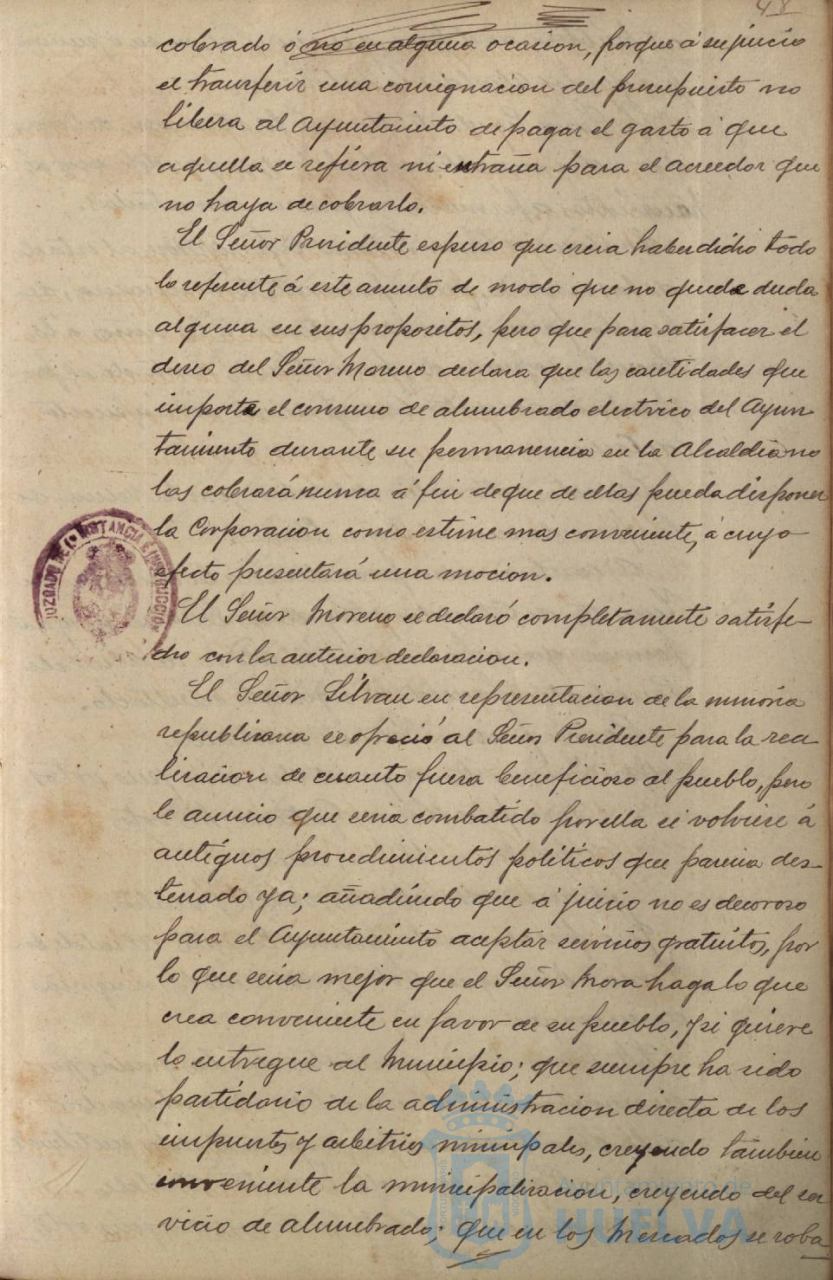 48
cobrado ó nó en alguna ocasion, porque á su juicio
el transferir una consignacion del presupuesto no
libera al Ayuntamiento de pagar el gasto á que
aquella se refiera ni entraña para el acreedor que
no haya de cobrarlo.
El Señor Presidente espuso que creia haber dicho todo
lo referente á este asunto de modo que no quede duda
alguna en sus propositos, pero que para satisfacer el
deseo del Señor Moreno declara que las cantidades que
importe el consumo de alumbrado electrico del Ayun-
tamiento durante su permanencia en la Alcaldia no
las cobrará nunca á fin de que de ellas pueda disponer
la Corporacion como estime mas conveniente, á cuyo
efecto presentará una mocion.
El Señor Moreno se declaró completamente satisfe-
cho con la anterior declaracion.
El Señor Silvan en representacion de la minoria
republicana se ofreció al Señor Presidente para la rea-
lizacion de cuanto fuera beneficioso al pueblo, pero
le anució que seria combatido por ella si volviese á
antiguos procedimientos politicos que parecia des-
terrado ya; añadiendo que á juicio no es decoroso
para el Ayuntamiento aceptar servicios gratuitos, por
lo que seria mejor que el Señor Mora haga lo que
crea conveniente en favor de su pueblo, y si quiere
lo entregue al Municipio; que siempre ha sido
partidario de la administracion directa de los
impuestos y arbitrios minipales, creyendo tambien
conveniente la municipalizacion, creyendo del ser
vicio de alumbrado; que en los Mercados se roba
JUZGADO DE 1ª INSTANCIA E INSTRUCCION
Ayuntamiento de
HUELVA